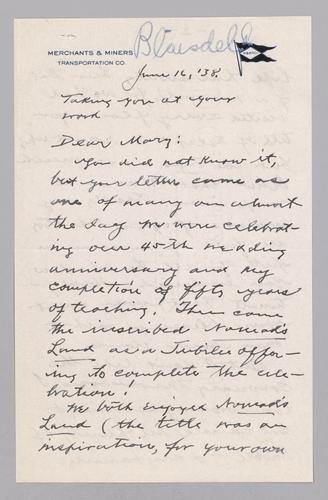 Blaisdell
MERCHANTS & MINERS
TRANSPORTATION CO.
June 16, '38.
Taking you at your
word
Dear Mary:
You did not know it,
but your letter came as
one of many on almost
the day we were celebrat-
ing our 45th wedding
anniversary and my
completion of fifty years
of teaching. Then came
the inscribed Nomad's
Land as a Jubilee offer-
ing to complete the cele-
bration!
We both enjoyed Nomad's
Land (the title was an
inspiration, for your own